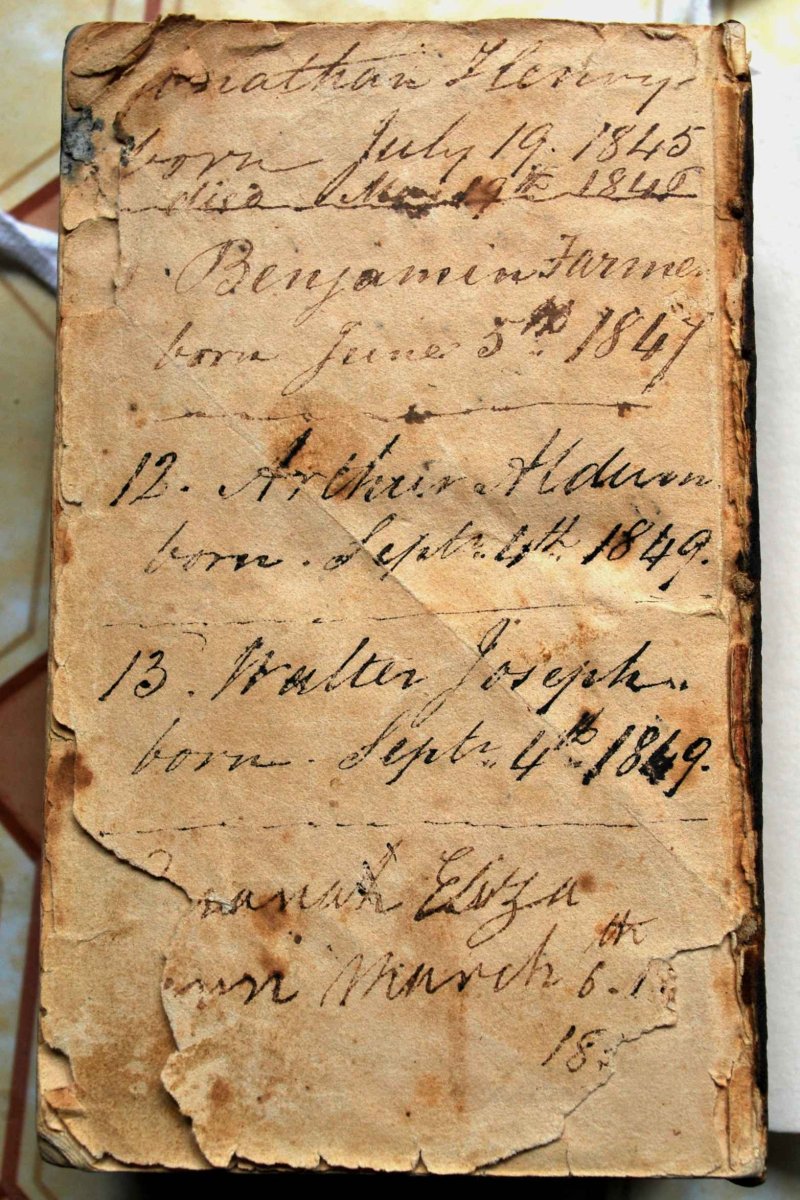 Jonathan Henry
born July 19. 1845
died 19th 1846
Benjamin Farmer
born June 5th 1847
12. Arthur Aldum
born. Septr. 4th 1849.
13. Walter Joseph.
born. Septr. 4th 1849.
Eliza
March 6th